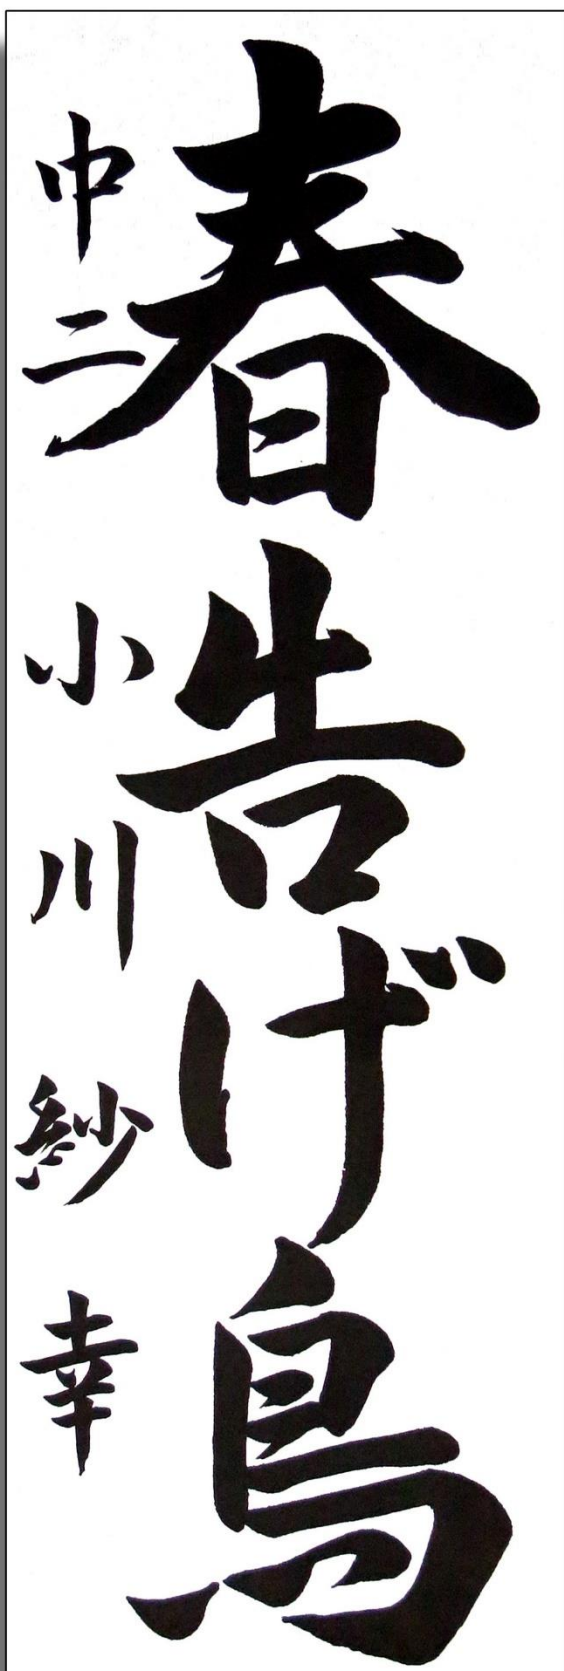 春告げ鳥
中二 小川紗幸